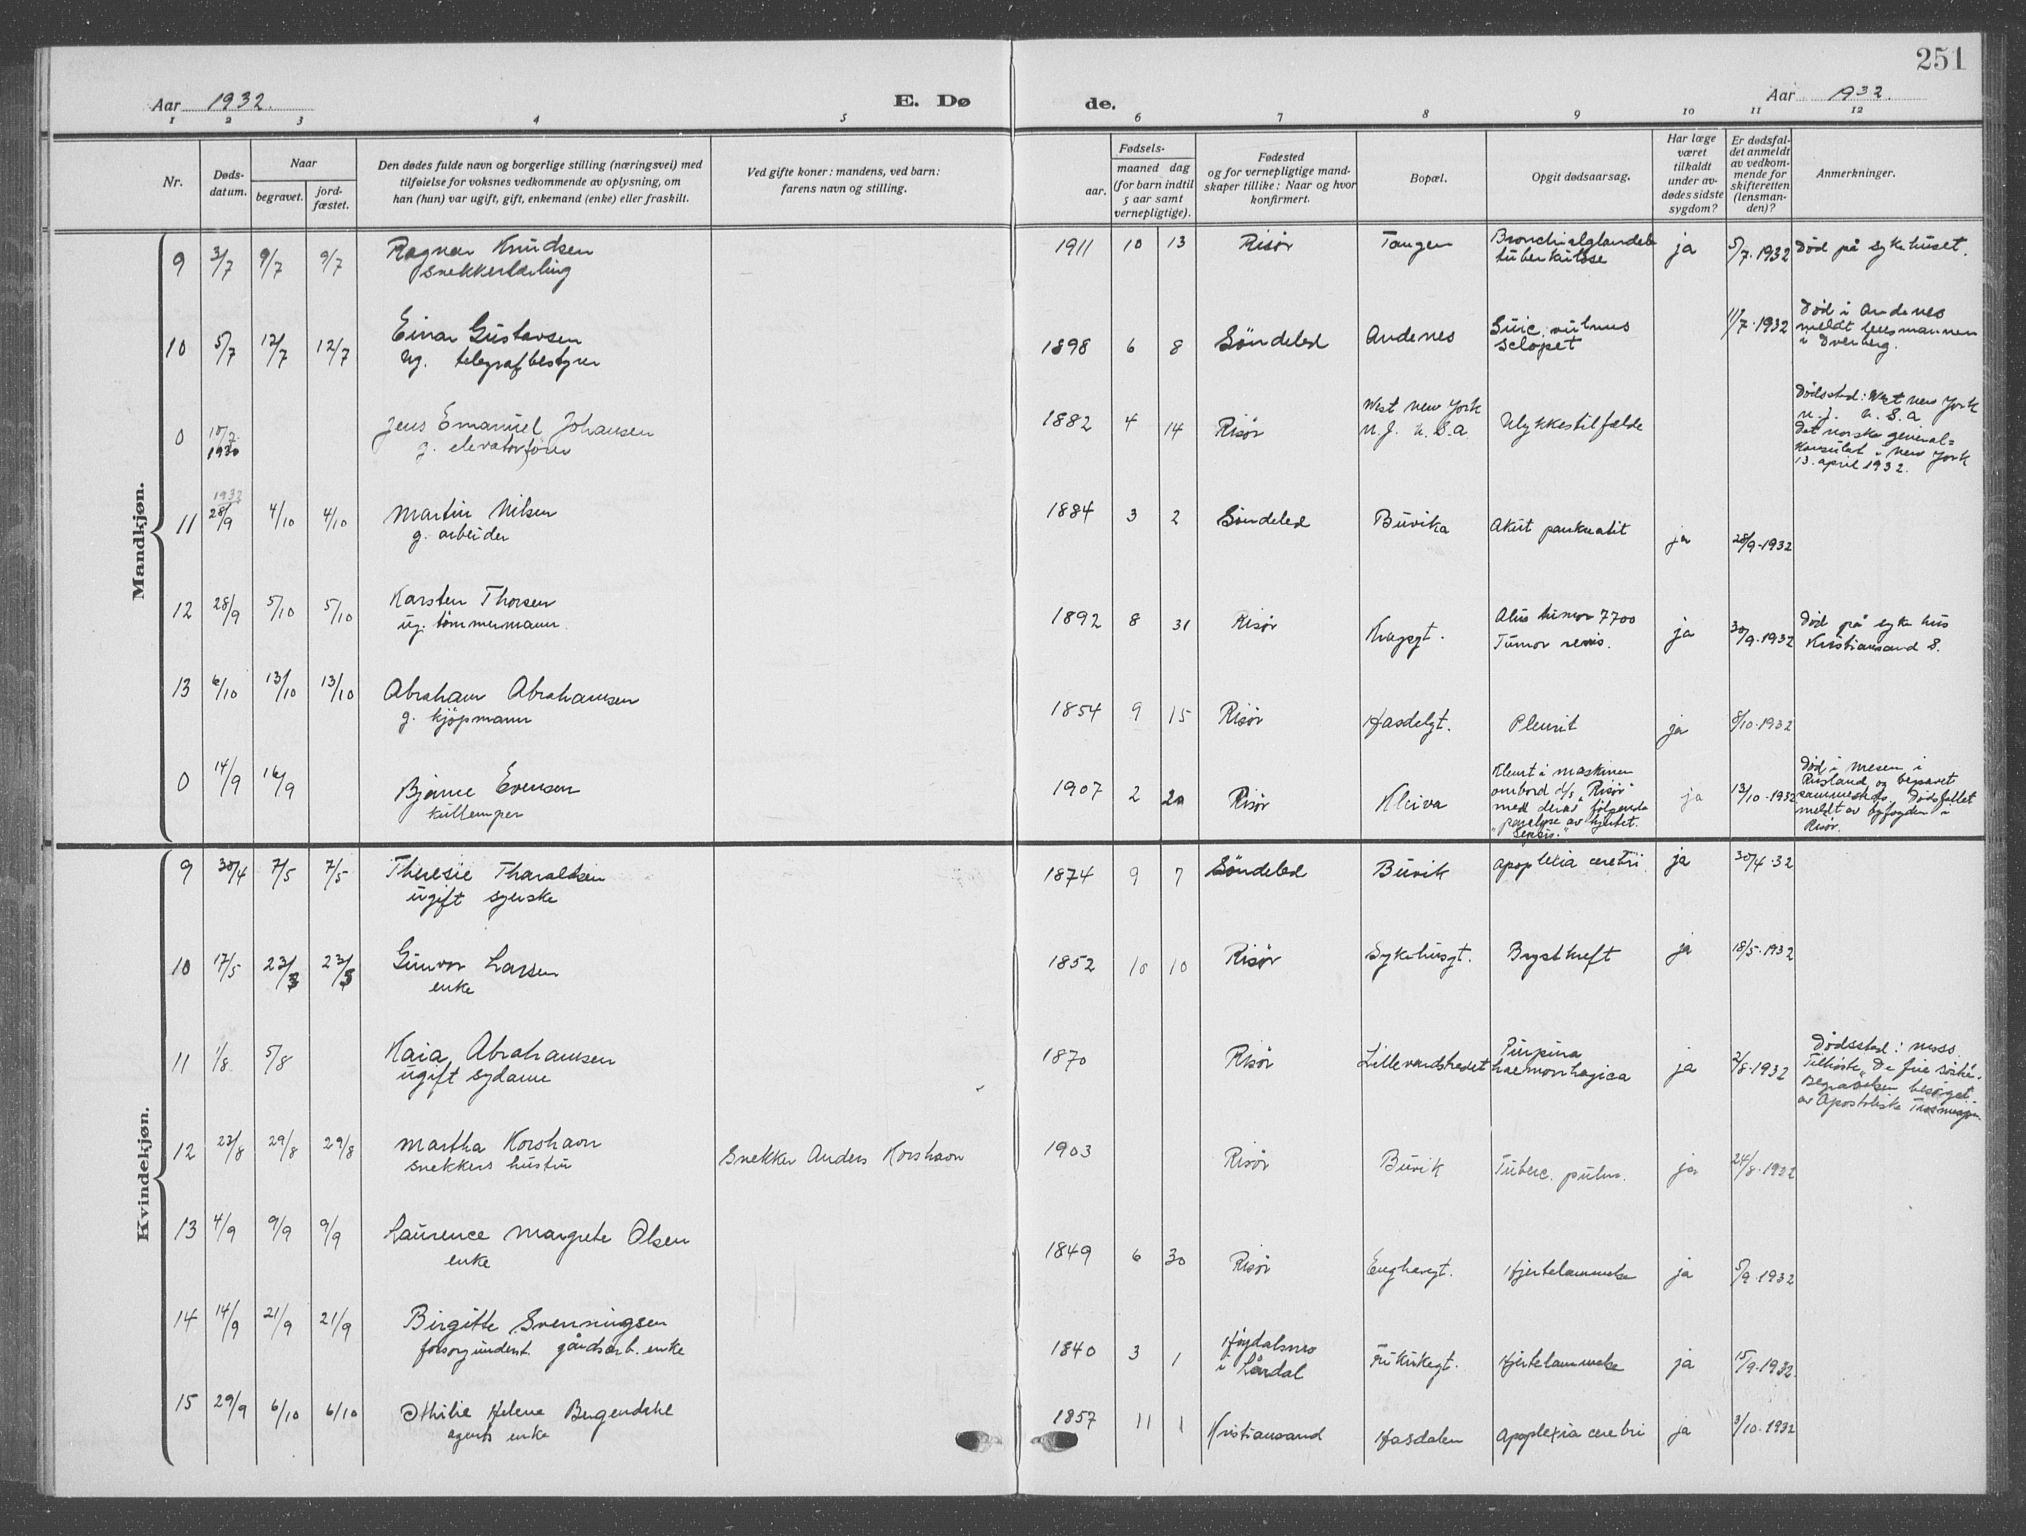 251
Aar 1932. E. Dø de. Aar 1932.
1 2 3 4 5 6 7 8 9 10 11 12
Nr.
Døds-
datum.
Naar
begravet.
jord-
fæstet.
Den dødes fulde navn og borgerlige stilling (næringsvei) med
tilføielse for voksnes vedkommende av oplysning, om
han (hun) var ugift, gift, enkemand (enke) eller fraskilt.
Ved gifte koner: mandens, ved barn:
farens navn og stilling.
Fødsels-
aar.
maaned dag
(for barn indtil
5 aar samt
vernepligtige).
Fødested
og for vernepligtige mand-
skaper tillike: Naar og hvor
konfirmert.
Bopæl.
Opgit dødsaarsag.
Har læge
været
tilkaldt
under av-
dødes sidste
sygdom?
Er dødsfal-
det anmeldt
av vedkom-
mende for
skifteretten
(lensman-
den)?
Anmerkninger.
Mandkjøn.
9 3/7 9/7 9/7 Ragnar Knudsen
snekkerlærling
1911 10 13 Risør Tangen Bronchialglandel
tuberkulose
ja 5/7.1932 Død på sykehuset.
10 5/7 12/7 12/7 Einar Gustavsen
ug. telegrafbestyrer
1898 6 8 Søndeled Andenes Suic. vulnus
sclopet
11/7.1932 Død i Andenes
meldt lensmannen
i Dverberg.
0 10/7 1930 Jens Emanuel Johansen
g. elevatorfører
1882 4 14 Risør West New York
N.J. U.S.A. Ulykkestilfælde
Dødssted: West New York
N.J. U.S.A
Det norske general=
konsulat i New York
13. april 1932.
11 1932 28/9 4/10 4/10 Martin Nilsen
g. arbeider
1884 3 2 Søndeled Buvika Akut pankreatit ja 28/9-1932
12 28/9 5/10 5/10 Karsten Thorsen
ug. tømmermann.
1892 8 31 Risør Kragsgt. tumor 7700
Tumor renis.
ja 30/9.1932 Død på sykehus
Kristiansand S.
13 6/10 13/10 13/10 Abraham Abrahamsen
g. kjøpmann
1854 9 15 Risør Hasdalgt. Pleurit ja 8/10.1932
0 14/9 16/9 Bjarne Evensen
kullemper
1907 2 20 Risør Kleiva Klemt i maskinen
ombord d/s "Risør"
med derav følgende
"paralyse av hjertet.
Sepsis."
ja 13/10-1932 Død i Mesen i
Rusland og begravet
sammesteds. Dødsfallet
meldt av byfogden i
Risør.
Kvindekjøn.
9 30/4 7/5 7/5 Theresie Tharaldsen
ugift syerske
1874 9 7 Søndeled Buvik apoplexia cerebri. ja 30/4-32
10 17/5 23/5 23/5 Gunvor Larsen
enke
1852 10 10 Risør Sykehusgt. Brystkreft ja 18/5-1932
11 1/8 5/8 Kaia Abrahamsen
ugift sydame
1870 Risør Lillevardshedet Purpura
haemorrhagica
ja 2/8-1932 Dødssted: Moss.
Tilhørte "De frie
Begravelsen besørget
av Apostoliske
12 23/8 29/8 29/8 Martha Korshavn
snekkers hustru
Snekker Anders Korshavn
1903 Risør Buvik Tuberc. pulm. ja 24/8.1932
13 4/9 9/9 9/9 Laurence Margrete Olsen
enke
1849 6 30 Risør Enghavgt. Hjertelammelse ja 5/9.1932
14 14/9 21/9 21/9 Birgitte Svenningsen
forsorgunderst. gårdsarb. enke
1840 3 1 Høydalsmo
i Lårdal Hjertelammelse ja 15/9.1932.
15 29/9 6/10 6/10 Othilie Helene Bergendahl
agents enke
1857 11 1 Kristiansand Hasdalen Apoplexia cerebri ja 3/10.1932